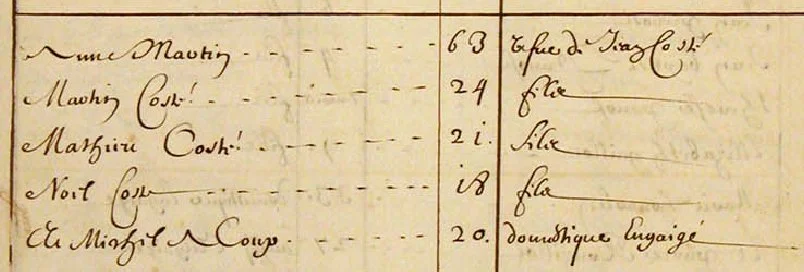 Anne Martin 63 vefue de Jean Costé
Martin Costé 24 filz
Mathieu Costé 21. filz
Noel Coste 18 filz
Michel Coup. 20. domestique Engaigé